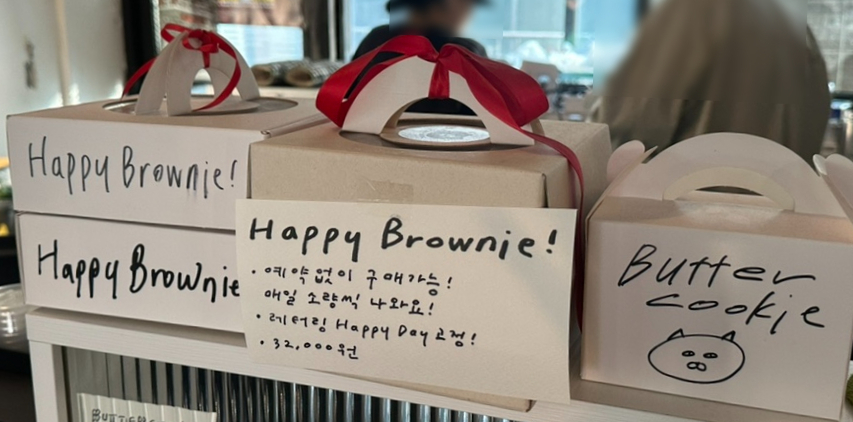 Happy Brownie!
Happy Brownie
Happy Brownie!
• 예약 없이 구매가능!
매일 소량씩 나와요!
• 레터링 Happy Day 고정!
• 32,000원
Butter
cookie